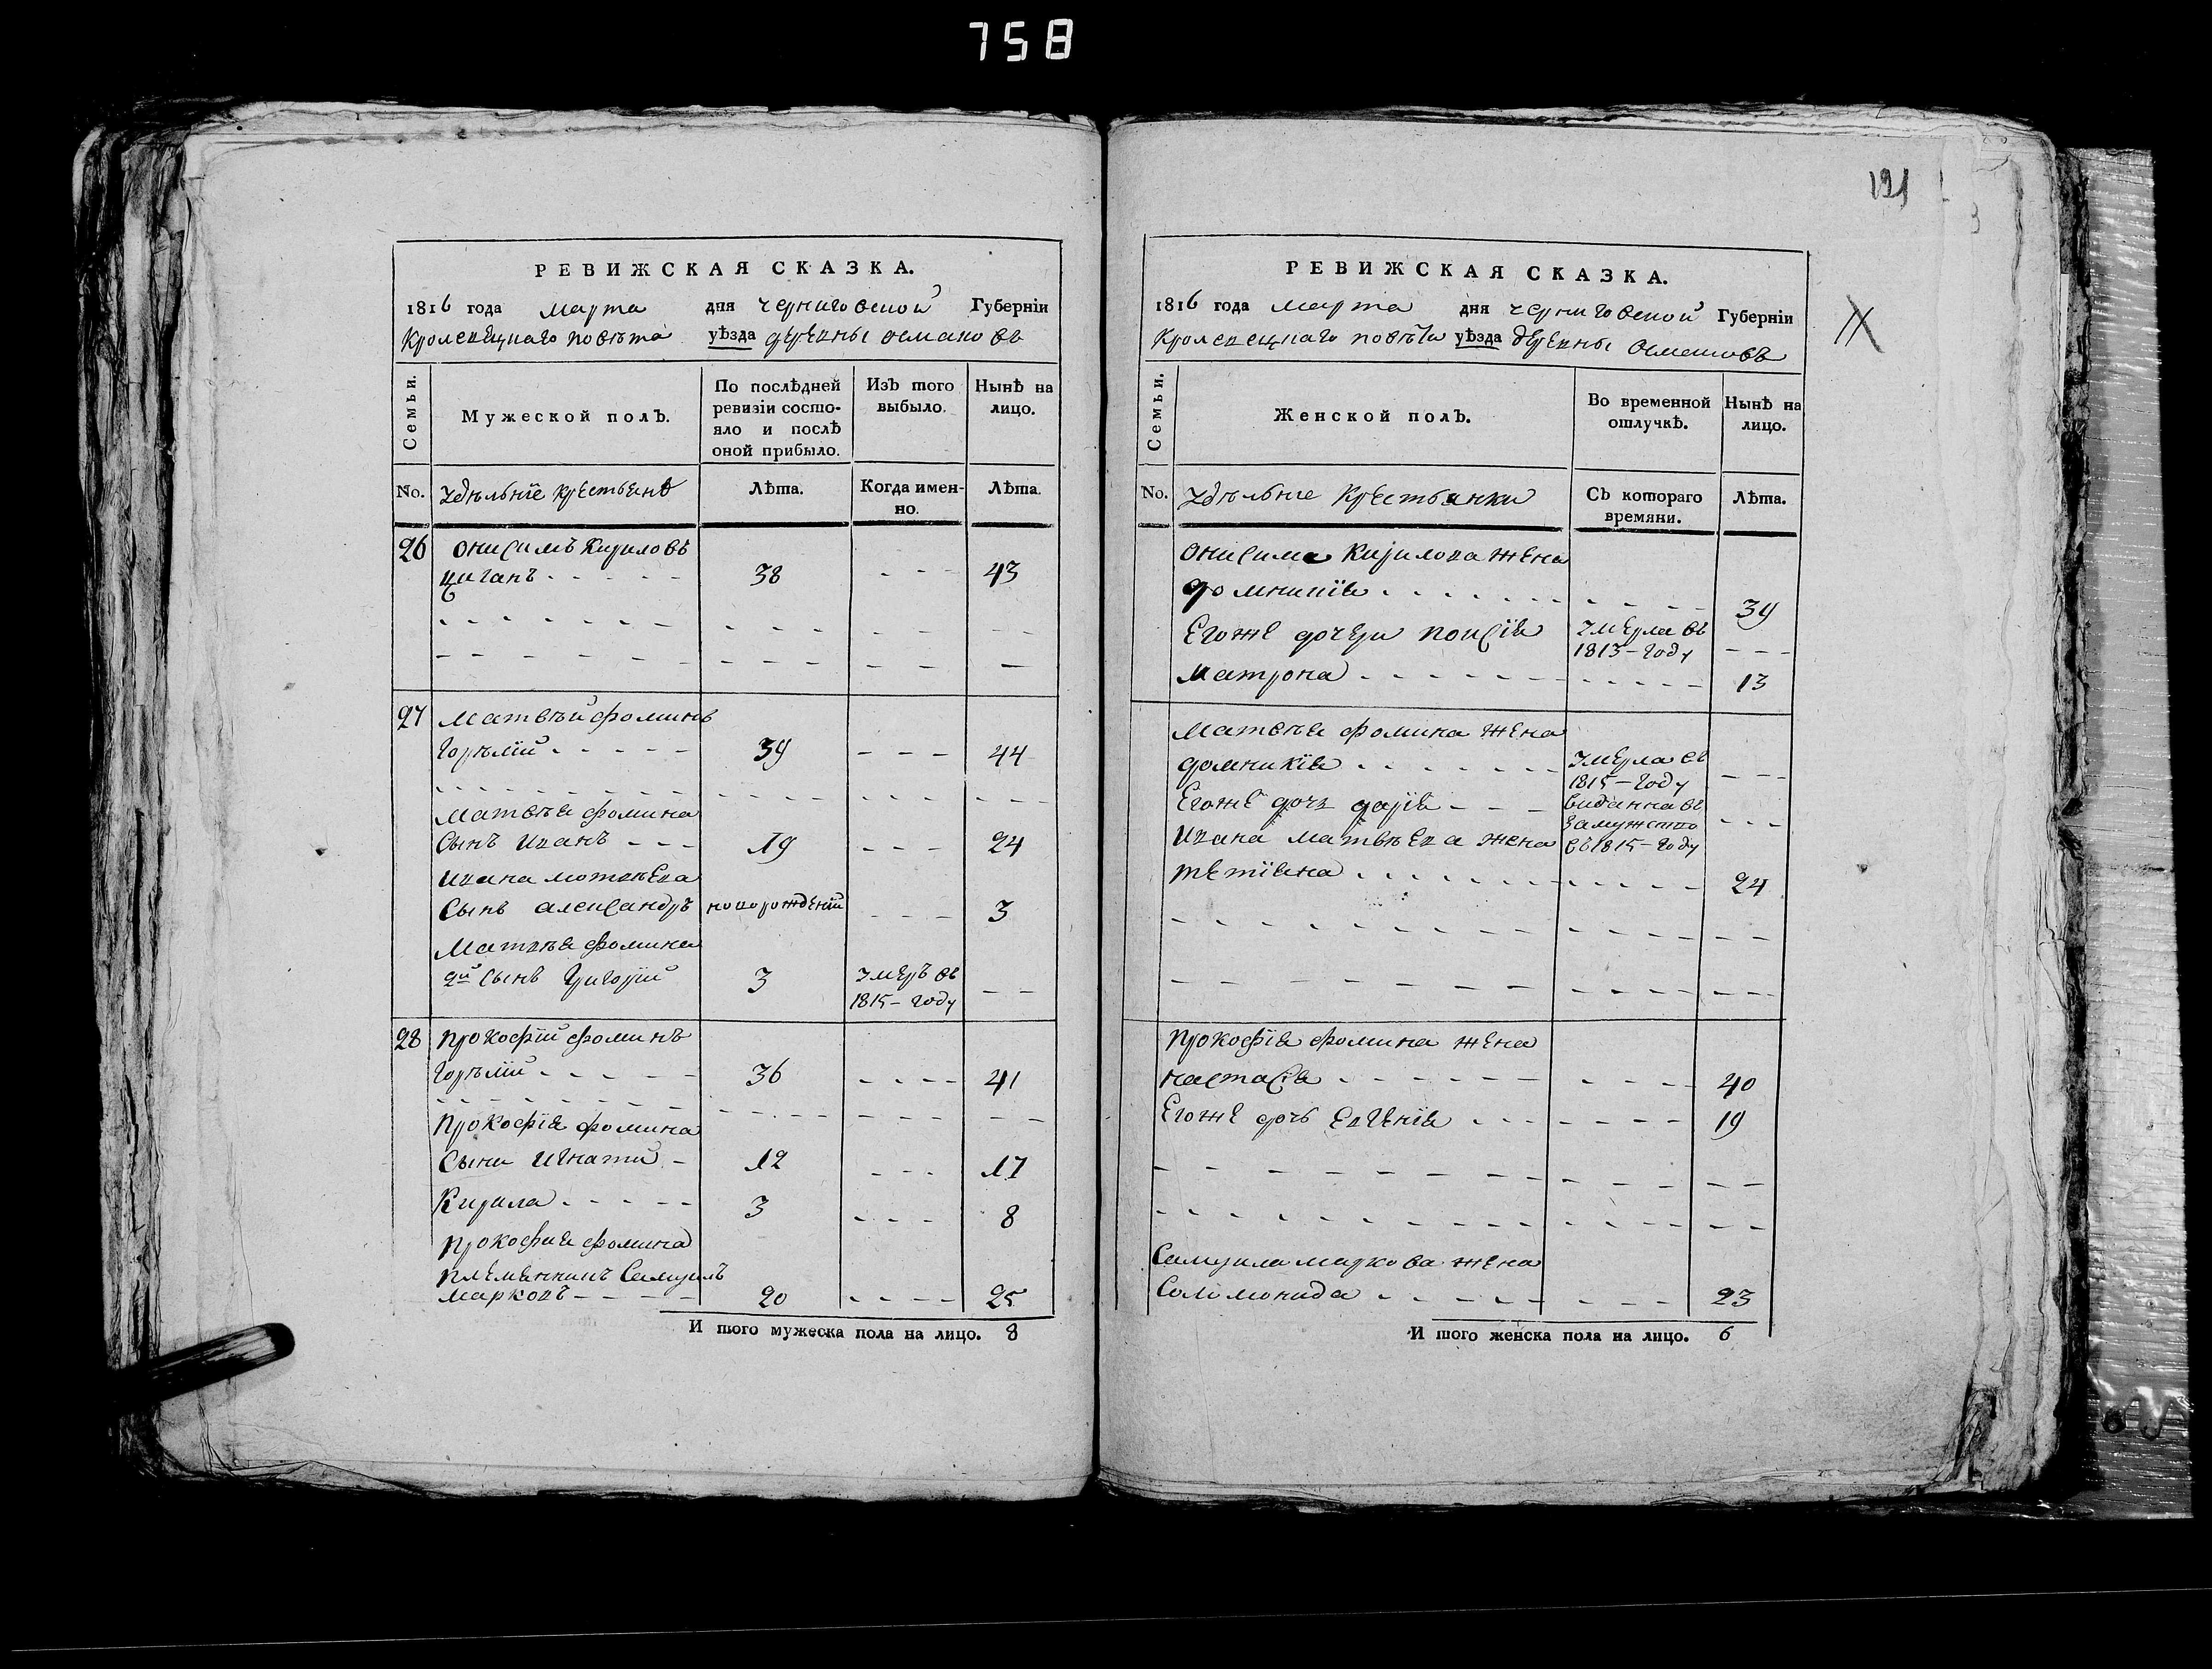 758
РЕВИЖСКАЯ СКАЗКА.
1816 года марта дня черниговской Губерніи
Кролевецкаго повѣта уѣзда деревны осмаковъ
Семьи.
Мужеской полъ.
По послѣдней
ревизіи состо-
яло и послѣ
оной прибыло.
Изъ того
выбыло.
Нынѣ на
лицо.
No. Удѣльніе крестьянѣ
Лѣта.
Когда имен-
но.
Лѣта.
26 онисимъ кириловъ
циганъ 38 43
27 матвѣй фоминъ
Горѣлій 39 44
матвѣя фомина
Сынъ иванъ 19 24
ивана мотвѣева
Сынъ александръ новорожденій 3
матвѣя фомина
2й сынъ григорій 3 умеръ въ
1815 - году
28 прокофій фоминъ
Горѣлій 36 41
прокофія фомина
Сыни игнатій 12 17
Кирила 3 8
прокофия фомина
племянникъ Самуилъ
марковъ 20 25
И того мужеска пола на лицо. 8
121
РЕВИЖСКАЯ СКАЗКА.
1816 года марта дня черниговской Губерніи
Кролевецкаго повѣта уѣзда деревны
Семьи.
Женской полъ.
Во временной
отлучкѣ.
Нынѣ на
лицо.
No. Удѣльніе крестьянки
Съ котораго
времяни.
Лѣта.
онисима кирилова жена
домникія 39
Егоже дочери умерла въ
1813 - году
матрона 13
матвѣя фомина жена
домникія умерла въ
1815 - году
Егоже дочь дарія виданна въ
замужство
въ 1815 - году
ивана матвѣева жена
тетіяна 24
прокофія фомина жена
настасія 40
Егоже дочь евгенія 19
Самуила маркова жена
Соломонида 23
И того женска пола на лицо. 6